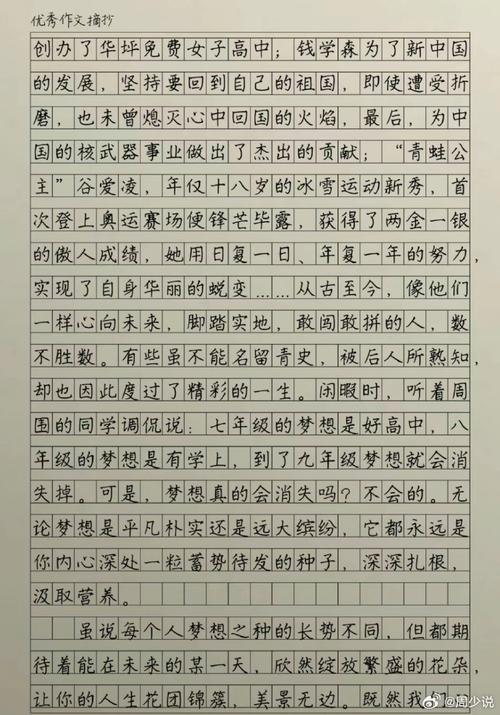 优秀作文摘抄
创办了华坪免费女子高中；钱学森为了新中国
的发展，坚持要回到自己的祖国，即使遭受折
磨，也未曾熄灭心中回国的火焰，最后，为中
国的核武器事业做出了杰出的贡献；“青蛙公
主”谷爱凌，年仅十八岁的冰雪运动新秀，首
次登上奥运赛场便锋芒毕露，获得了两金一银
的傲人成绩，她用日复一日、年复一年的努力，
实现了自身华丽的蜕变……从古至今，像他们
一样心向未来，脚踏实地，敢闯敢拼的人，数
不胜数。有些虽不能名留青史，被后人所熟知，
却也因此度过了精彩的一生。闲暇时，听着周
围的同学调侃说：七年级的梦想是好高中，八
年级的梦想是有学上，到了九年级梦想就会消
失掉。可是，梦想真的会消失吗？不会的。无
论梦想是平凡朴实还是远大缤纷，它都永远是
你内心深处一粒蓄势待发的种子，深深扎根，
汲取营养。
虽说每个人梦想之种的长势不同，但都期
待着能在未来的某一天，欣然绽放繁盛的花朵，
让你的人生花团锦簇，美景无边。既然我
@周少说